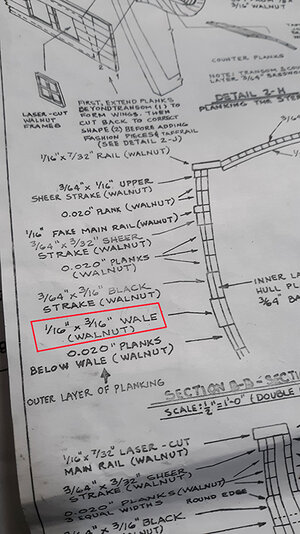 3/16" WALNUT)
COUNTER PLANKS
NOTE: TRANSOM & COU
LAYER 3/64" BASSWO
DETAIL 2-H
PLANKING THE STE
LASER-CUT
WALNUT
FRAMES
FIRST, EXTEND PLANKS
BEYOND TRANSOM (1) TO
FORM WINGS. THEN
CUT BACK TO CORRECT
SHAPE (2) BEFORE ADDING
FASHION PIECES & TAFFRAIL
(SEE DETAIL 2-J)
1/16" x 7/32" RAIL (WALNUT)
3/64" x 1/16" UPPER
SHEER STRAKE (WALNUT)
0.020" PLANK (WALNUT)
1/16" FAKE MAIN RAIL (WALNUT)
3/64" x 3/32" SHEER
STRAKE (WALNUT)
0.020" PLANKS
(WALNUT)
3/64" x 3/16" BLACK
STRAKE (WALNUT)
1/16" x 3/16" WALE
(WALNUT)
0.020" PLANKS
BELOW WALE (WALNUT)
OUTER LAYER OF PLANKING
INNER L
HULL PL
3/64" BA
SECTION B-B - SECTI
SCALE: 1/2" = 1'-0" (DOUBLE
1/16" x 7/32" LASER-CUT
MAIN RAIL (WALNUT)
3/64" x 3/32" SHEER
STRAKE (WALNUT)
0.020" PLANKS (WALNUT)
3 EQUAL WIDTHS
ROUND EDGE
3/64" x 3/16" BLACK